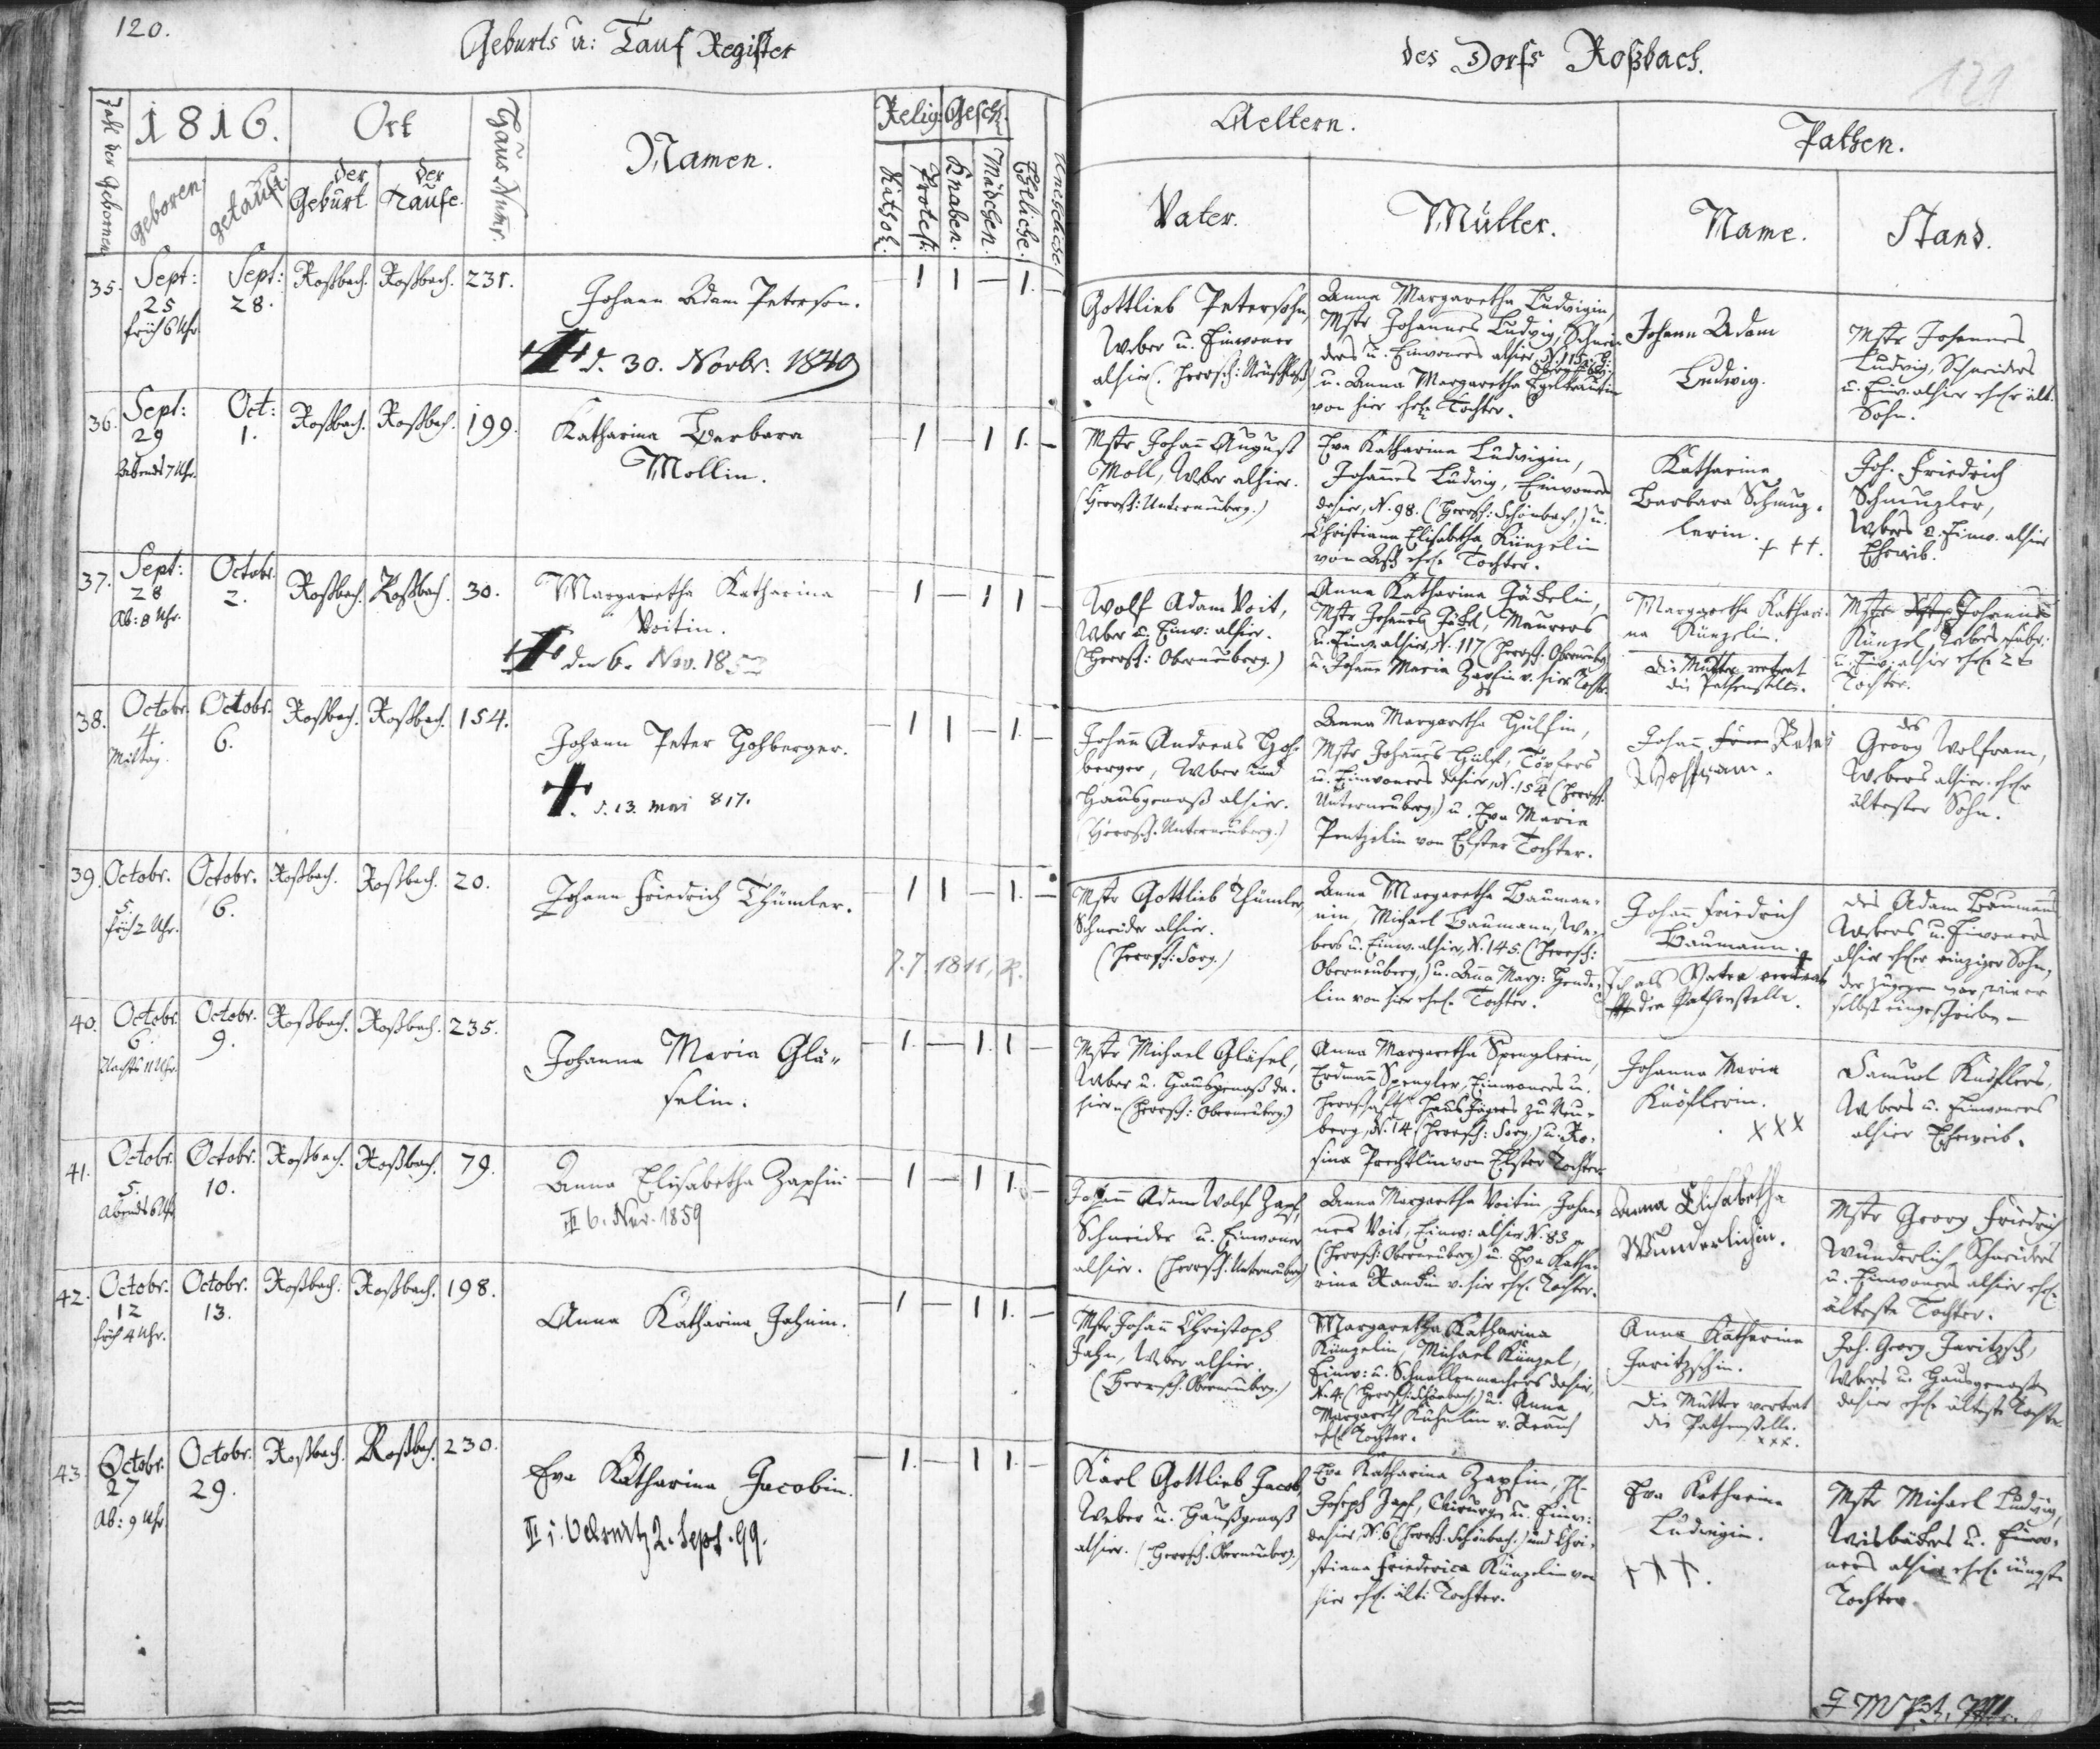 120.
Geburts u: Tauf Register
des Dorfs Roßbach.
121
Zahl der Gebornen
1816.
geboren.
getauft.
Ort
der Geburt
der Taufe.
Haus Numr.
Namen.
Relig:
Kathol.
Protest:
Gesch:
Knaben.
Mädchen.
Eheliche.
Uneheliche.
Aeltern.
Vater.
Mutter.
Pathen.
Name.
Stand.
35. Sept: 25 früh 6 Uhr. Sept: 28. Roßbach. Roßbach. 231.
Johann Adam Peterson.
d. 30. Novbr. 1840
— 1 1 — 1. —
Gottlieb Petersohn,
Weber u. Einwoner
alhier. (Herrsch: Neuschloß)
Anna Margaretha Ludwigin,
Mstr Johannes Ludwig, Schnei-
ders u. Einwoners alhier, N. 115.
u. Anna Margaretha
von hier ehel. Tochter.
Johann Adam
Ludwig.
Mstr Johannes
Ludwig, Schneiders
u. Einw. alhier ehel. ält.
Sohn.
36. Sept: 29 Abends 7 Uhr. Oct: 1. Roßbach. Roßbach. 199.
Katharina Barbara
Mollin.
— 1 — 1 1. —
Mstr Johann August
Moll, Weber alhier.
(Herrsch: Unterneuberg.)
Eva Katharina Ludwigin,
Johannes Ludwig, Einwoners
dahier, N. 98. (Herrsch: Schönbach,) u.
Christiana Elisabetha Künzelin
von Asch ehel. Tochter.
Katharina
Barbara Schmuz-
lerin.
+ ++.
Joh. Friedrich
Schmuzler,
Webers u. Einw. alhier
Eheweib.
37. Sept: 28 Ab: 8 Uhr. Octobr. 2. Roßbach. Roßbach. 30.
Margaretha Katharina
Voitin.
den 6. Nov. 1852
— 1 — 1 1 —
Wolf Adam Voit,
Weber u. Einw: alhier.
(Herrsch: Oberneuberg.)
Anna Katharina Jäkelin,
Mstr Johannes Jäkel, Maurers
u. Einw. alhier, N. 117 (Herrsch. Oberneuberg)
u. Johanna Maria Zapfin v. hier Tochter.
Margaretha Kathari-
na Künzelin.
Die Mutter vertrat
die Pathenstelle.
Mstr Johannes
Künzel, Webers
u. Einw. alhier ehel. 2te
Tochter.
38. Octobr. 4 Mittag. Octobr. 6. Roßbach. Roßbach. 154.
Johann Peter Hohberger.
d. 13. Mai 817.
— 1 1 — 1. —
Johann Andreas Hoh-
berger, Weber und
Hausgenoß alhier.
(Herrsch. Unterneuberg.)
Anna Margaretha Hülfin,
Mstr Johannes Hülf, Töpfers
u. Einwoners dahier, N. 154 (Herrsch.
Unterneuberg,) u. Eva Maria
Pentzelin von Elster Tochter.
Johann Peter
Wolfram.
des
Georg Wolfram,
Webers alhier ehel.
ältester Sohn.
39. Octobr. 5 früh 2 Uhr. Octobr. 6. Roßbach. Roßbach. 20.
Johann Friedrich Thümler.
— 1 1 — 1. —
Mstr Gottlieb Thümler,
Schneider alhier.
(Herrsch: Sorg.)
Anna Margaretha Bauman-
nin, Michael Baumann, We-
bers u. Einw. alhier, N. 145. (Herrsch:
Oberneuberg,) u. Anna Marg:
lin von hier ehel. Tochter.
Johann Friedrich
Baumann.
Ich als Vater vertrat
die Pathenstelle.
des Adam Baumann
Webers u. Einwoners
alhier ehel. einziger Sohn,
der zugegen war, wie er
selbst eingeschrieben
40. Octobr. 6. Nachts 11 Uhr. Octobr. 9. Roßbach. Roßbach. 235.
Johanna Maria Glä-
selin.
— 1. — 1. 1 —
Mstr Michael Gläsel,
Weber u. Hausgenoß da-
hier. (Herrsch: Oberneuberg.)
Anna Margaretha Spenglerin,
Erdmann Spengler, Einwoners u.
Herrschaftl. Haus Jägers zu Neu-
berg, N. 14 (Herrsch: Sorg,) u. Ro-
sina Prechtlin von Elster Tochter.
Johanna Maria
Knöflerin.
XXX
Samuel Knöflers,
Webers u. Einwoners
alhier Eheweib.
41. Octobr. 5. Abends 6 Uhr. Octobr. 10. Roßbach. Roßbach. 79.
Anna Elisabetha Zapfin
6. Nov. 1859
— 1 — 1 1. —
Johann Adam Wolf Zapf,
Schneider u. Einwoner
alhier. (Herrsch. Unterneuberg)
Anna Margaretha Voitin, Johan-
nes Voit, Einw: alhier N. 83
(Herrsch: Oberneuberg) u. Eva Katha-
rina v. hier ehel. Tochter.
Anna Elisabetha
Wunderlichin.
Mstr Georg Friedrich
Wunderlich Schneiders
u. Einwoners alhier ehel.
älteste Tochter.
42. Octobr. 12 früh 4 Uhr. Octobr. 13. Roßbach. Roßbach. 198.
Anna Katharina Jahnin.
— 1 — 1 1. —
Mstr Johann Christoph
Jahn, Weber alhier.
(Herrsch. Oberneuberg.)
Margaretha Katharina
Künzelin, Michael Künzel,
Einw: u. Schnallenmachers dahier,
N. 4. (Herrsch: Schönbach,) u. Anna
Margareth
ehel. Tochter.
Anna Katharina
Jaritzschin.
Die Mutter vertrat
die Pathenstelle.
xxx.
Joh. Georg Jaritzsch,
Webers u. Hausgenoßen
dahier ehel. älteste Tochter.
43. Octobr. 27 Ab: 9 Uhr Octobr. 29. Roßbach. Roßbach. 230.
Eva Katharina Jacobin.
2. Sept. 99.
— 1. — 1 1. —
Karl Gottlieb Jacob,
Weber u. Haußgenoß
alhier. (Herrsch. Oberneuberg.)
Eva Katharina Zapfin,
Joseph Zapf, Chirurgs u. Einw:
dahier, N. 6 (Herrsch. Schönbach,) und Chri-
stiana Friederica Künzelin von
hier ehel. ält: Tochter.
Eva Katharina
Ludwigin.
+++.
Mstr Michael Ludwig,
Weisbäkers u. Einwo-
ners alhier ehel. jüngste
Tochter.